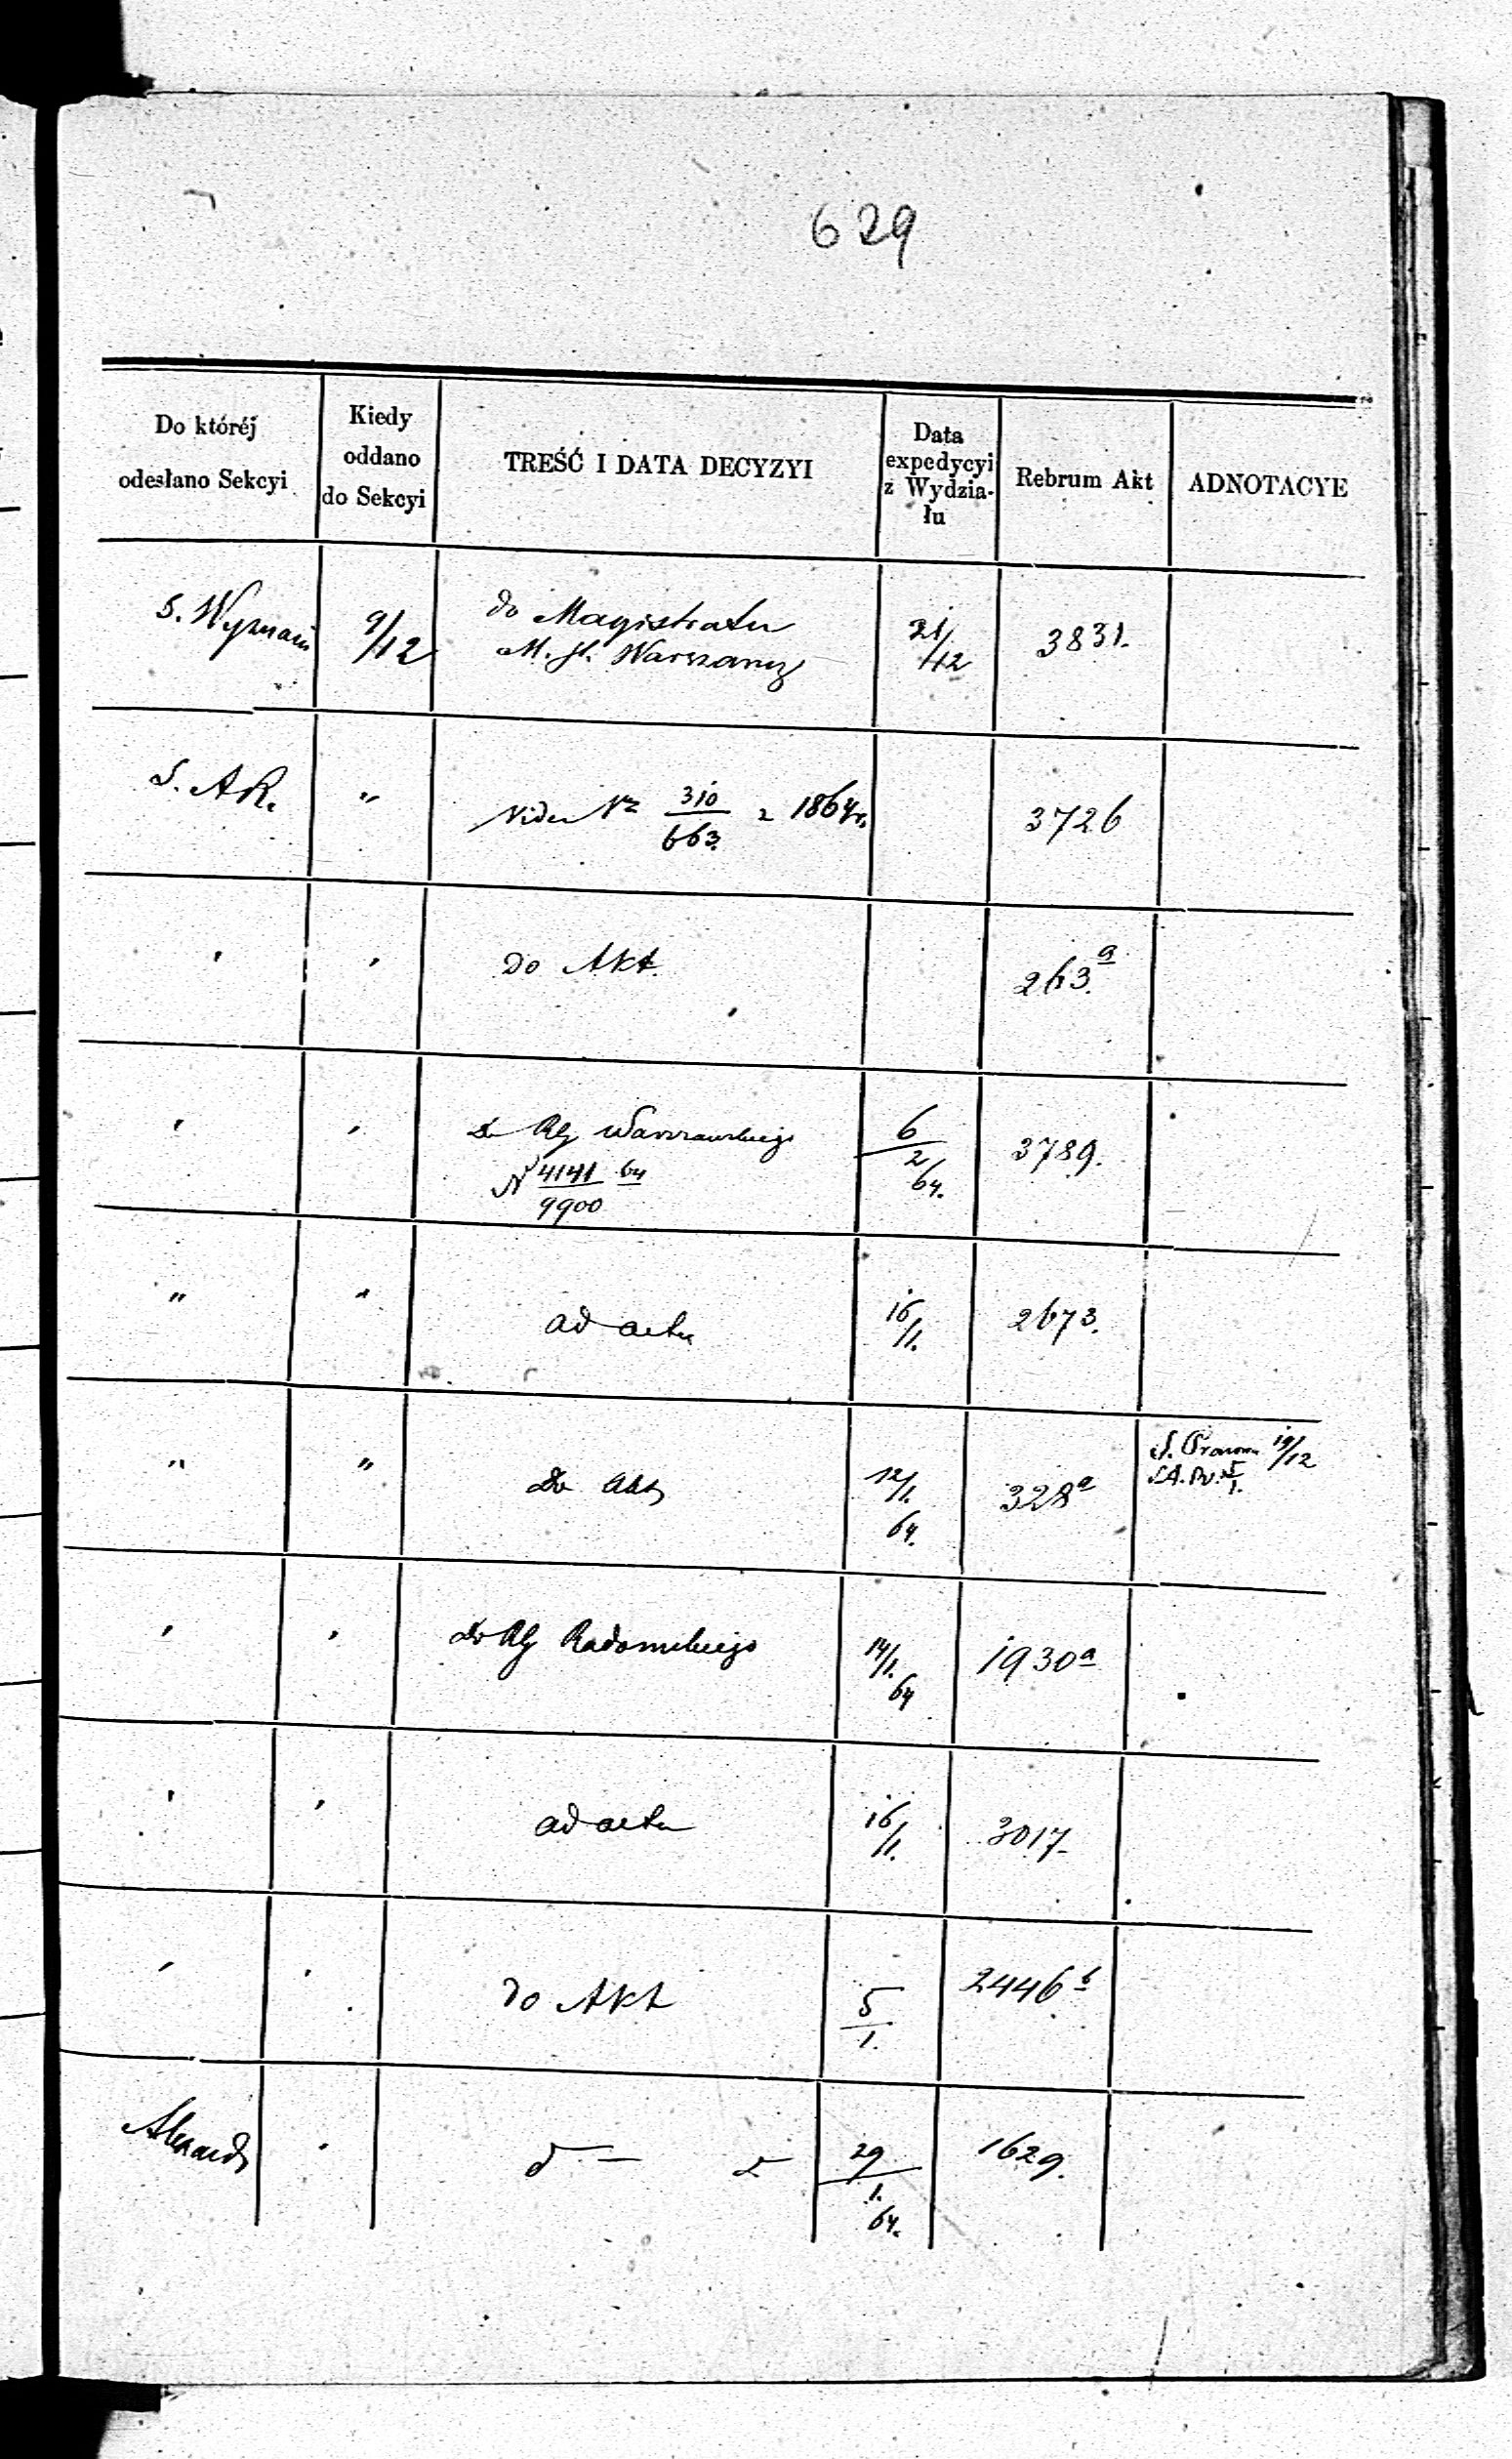 629
Do któréj odesłano Sekcyi
Kiedy oddano do Sekcyi
TREŚĆ I DATA DECYZYI
Data expedycyi z Wydzia-łu
Rebrum Akt
ADNOTACYE
S. Wyznań 9/12 do Magistratu 21/12 3831.
M. st. Warszawy
S. AR. " Vide Nr 310/663. z 1864 r. 3726
" " do Akt. 263.a
" " Do RG Warszawskiego 6/2 64. 3789.
N 4141/9900 64
" " ad acta 16/1. 2673.
" " Do Akt 12/1. 64. 328a S. Prawna 19/12
" " Do RG Radomskiego 14/1. 64 1930a
" " ad acta 16/1. 3017.
" " do Akt 5/1. 2446b
" d — 29/1. 64. 1629.